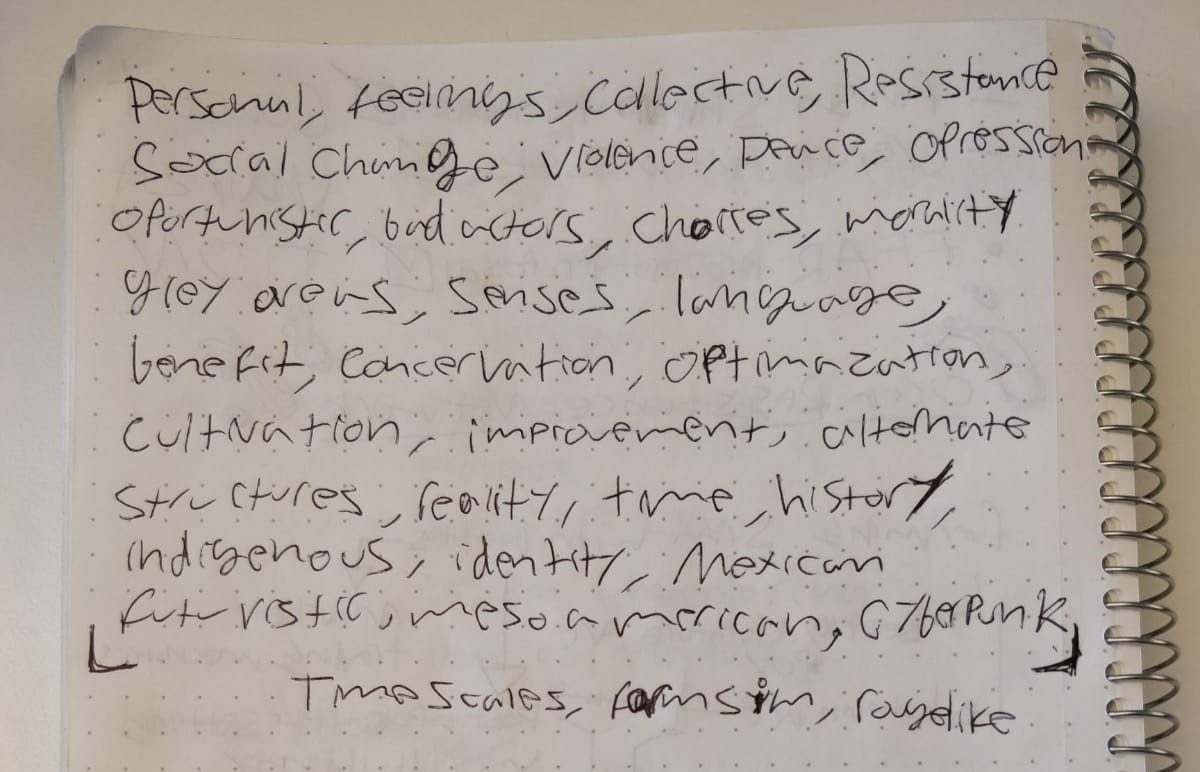 Personal, feelings, Collective, Resistance
Social Change, violence, peace, opression
oportunistic, bad actors, choices, morality
grey areas, senses, language,
benefit, concervation, optimazation,
cultivation, improvement, alternate
structures, reality, time, history,
indigenous, identity, Mexican
futuristic, mesoamerican, Cyberpunk
Time Scales, farm sim, rogelike